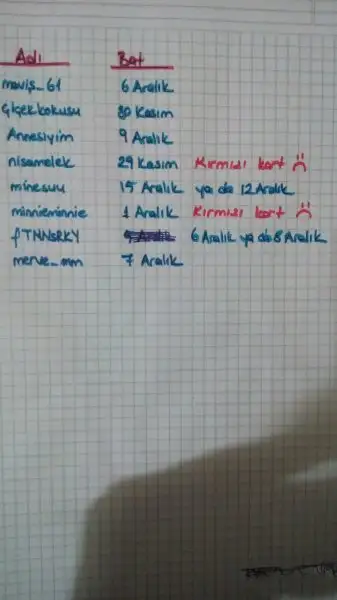 Adı Bat
maviş_61 6 Aralık
Çiçekkokusu 30 Kasım
Annesiyim 9 Aralık
nisamelek 29 Kasım Kırmızı kart
minesuu 15 Aralık ya da 12 Aralık
minnieminnie 1 Aralık Kırmızı kart
fTNNSRKY 6 Aralık ya da 8 Aralık
merve_mm 7 Aralık